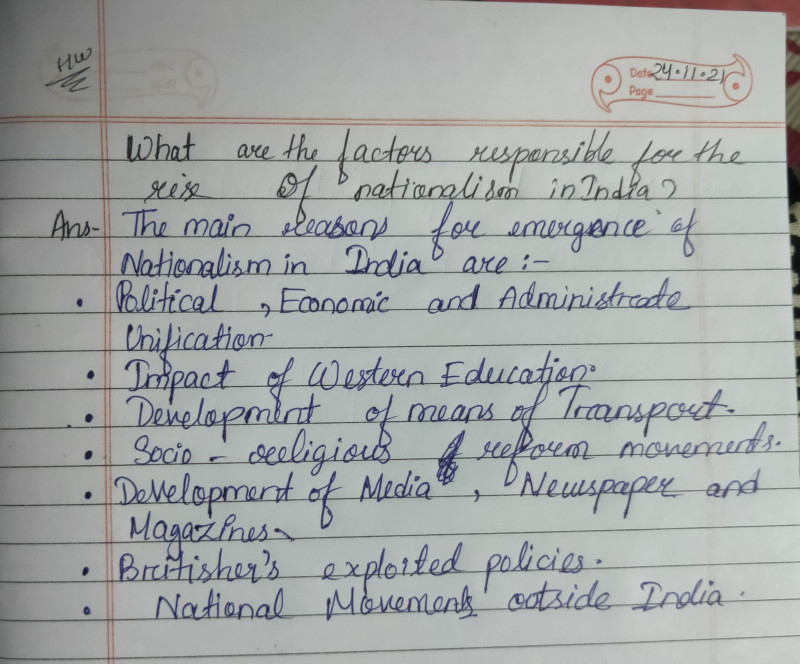 HW
Date 24.11.21
Page
What are the factors responsible for the
rise Of nationalism in India?
Ans- The main reasons for emergence of
Nationalism in India are :-
• Political , Economic and Administrate
Unification
• Impact of Western Education.
• Development of means of Transport.
• Socio - religious reform movements.
• Development of Media , Newspaper and
Magazines
• Britisher's exploited policies.
• National Movements outside India.